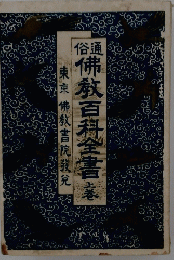 通俗
佛教百科全書 上卷
東京 佛教書院發兌